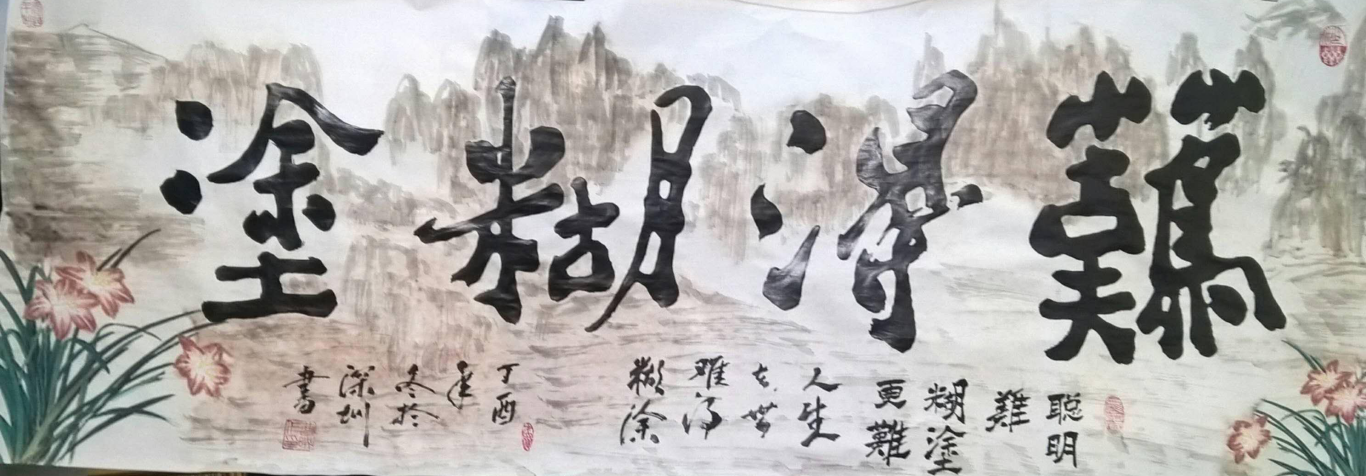 難得糊塗
聪明
難
糊塗
更難
人生
在世
难得
糊涂
丁酉
年
冬於
深圳
書